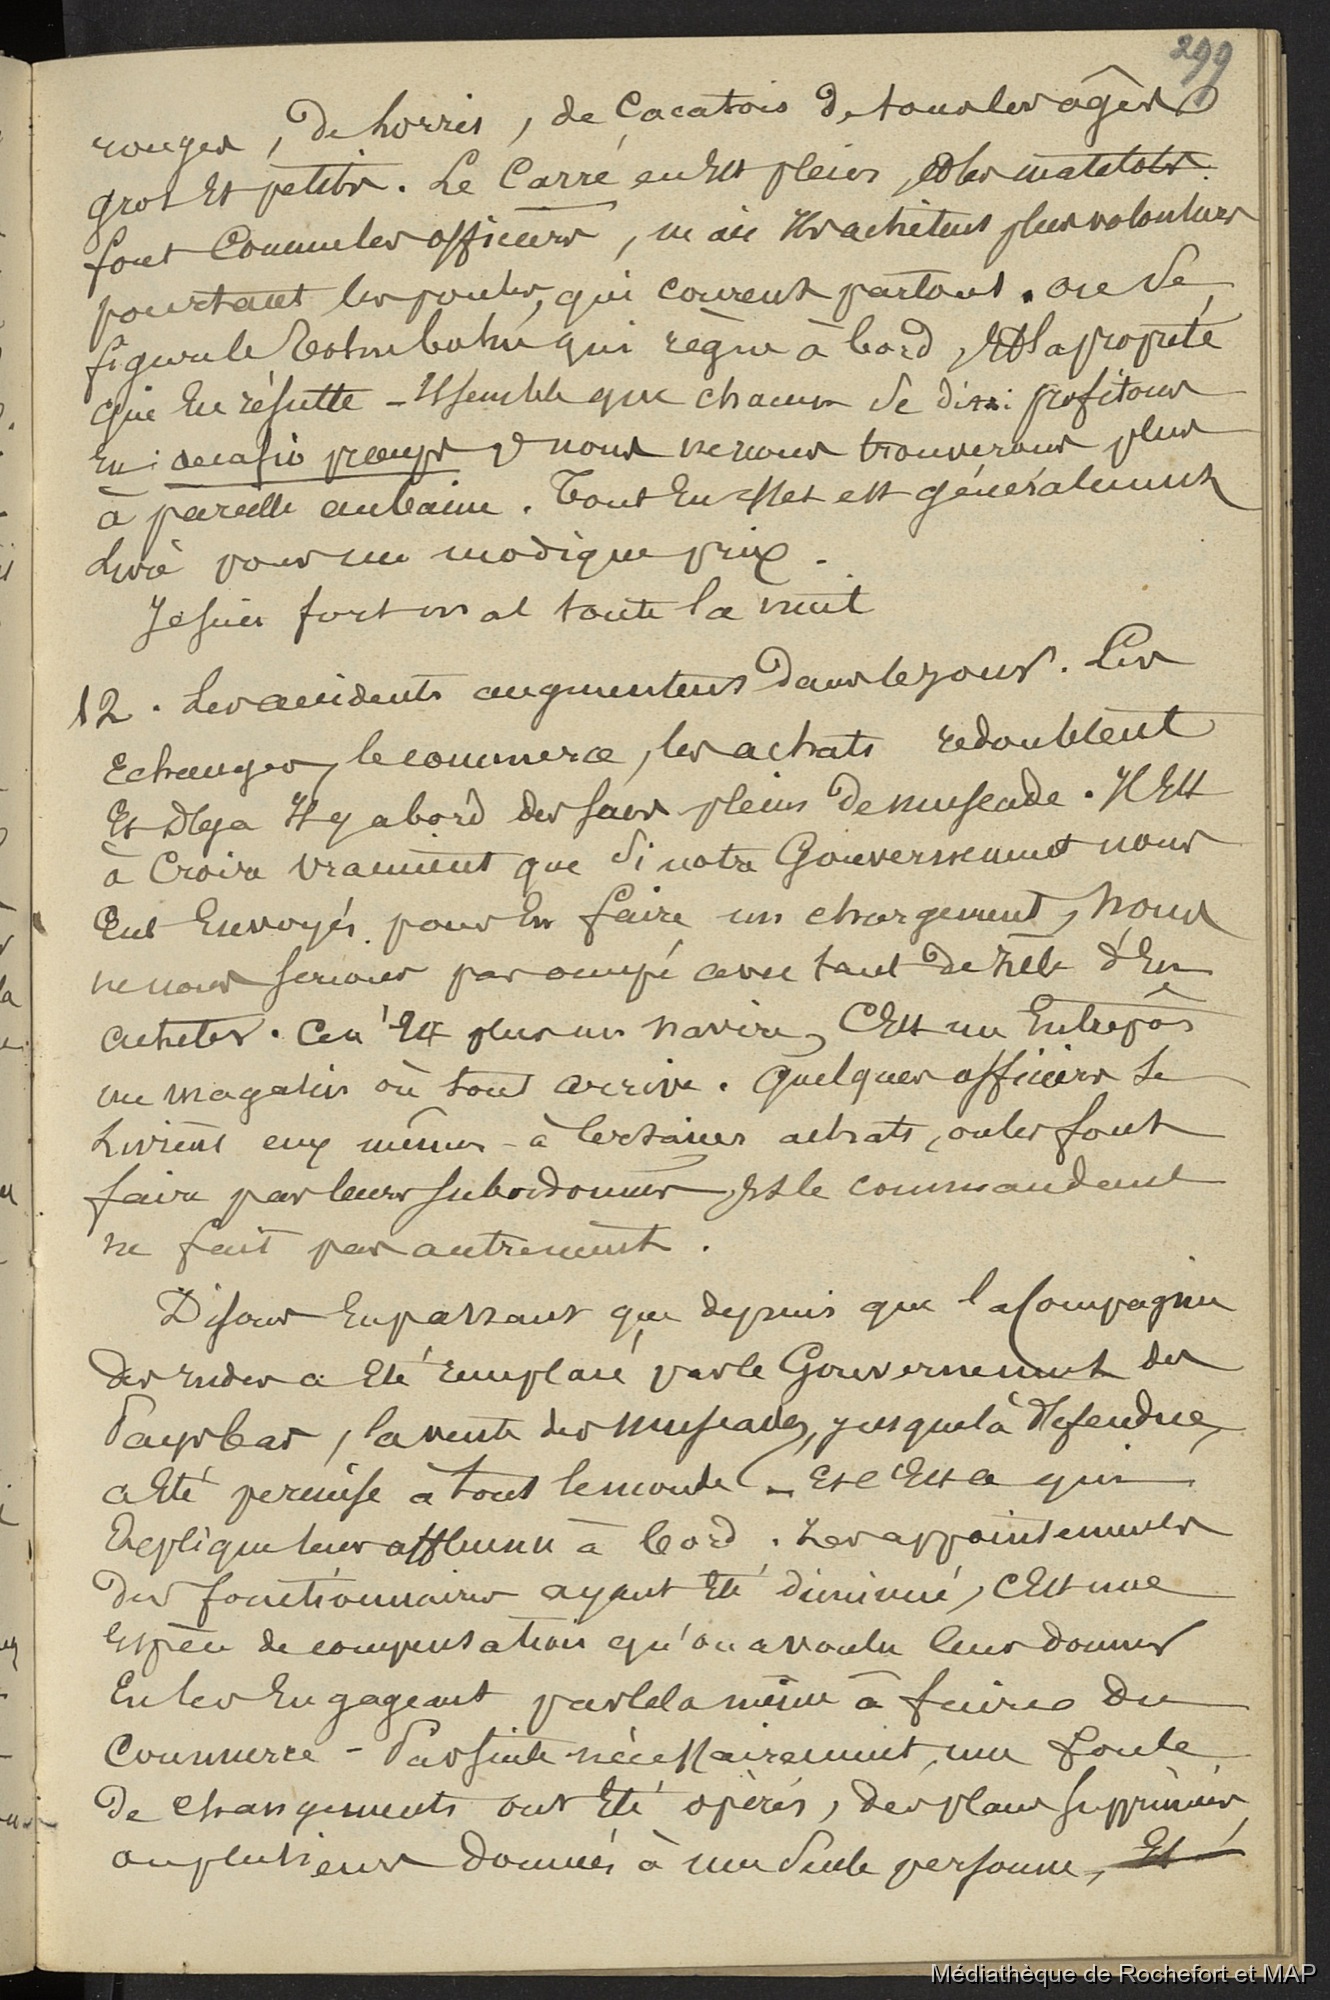 299
rouges, de lorris, de Cacatois de tous les âges
gros et petits. Le Carré en est plein, et les matelots
font comme les officiers, mais ils achètent plus volontiers
pourtant les poules, qui courent partout. On se
figure le tohu bohu qui règne à bord, et la propreté
qui en résulte - Il semble que chacun se dise: profitons
en: occasio præceps & nous ne nous trouverons plus
à pareille aubaine. Tout en effet est généralement
livré pour un modique prix.
Je suis fort mal toute la nuit
12. Les accidents augmentent dans le jour. Les
Echanges, le commerce, les achats redoublent
Et déja il y a bord des sacs pleins de muscade. Il est
à Croire vraiment que si notre Gouvernement nous
Eut Envoyés pour en faire un chargement, nous
ne nous serions pas occupé avec tant de zèle d'En
acheter. Ce n'est plus un navire, C'est un Entrepôt
un magasin où tout arrive. Quelques officiers se
livrent eux mêmes à certaines achats, ou les font
faire par leurs subordonnés, et le commandant
ne fait pas autrement.
Disons En passant que depuis que la Compagnie
des indes a été remplacé par le Gouvernement des
Pays bas, la vente des muscades, jusque là défendue,
a été permise à tout le monde - Et c'est ce qui
explique leur affluence à bord. Les appointements
des fonctionnaires ayant été diminué, C'est une
espèce de compensation qu'on a voulu leur donner
En les Engageant par cela même à faire du
Commerce - Par suite nécessairement, une foule
de changements ont été opérés, des places supprimées,
ou plusieurs données à une seule personne, Et
Médiathèque de Rochefort et MAP